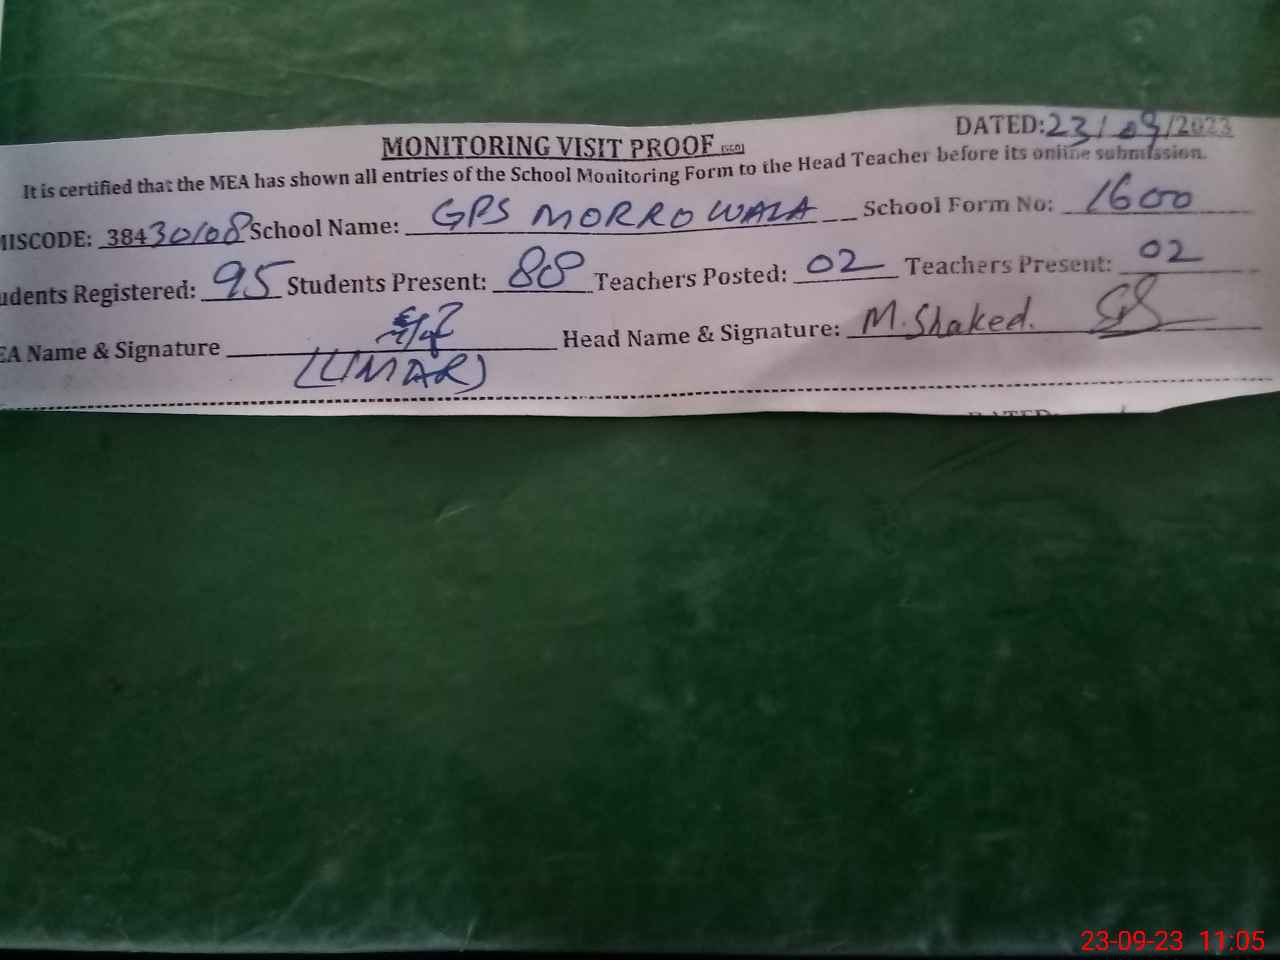 MONITORING VISIT PROOF
DATED:23/09/2023
It is certified that the MEA has shown all entries of the School Monitoring Form to the Head Teacher before its online submission.
MISCODE: 38430108 School Name: GPS MORROWALA School Form No: 1600
udents Registered: 95 Students Present: 88 Teachers Posted: 02 Teachers Present: 02
EA Name & Signature Head Name & Signature: M. Shaked.
(UMAR)
23-09-23 11:05